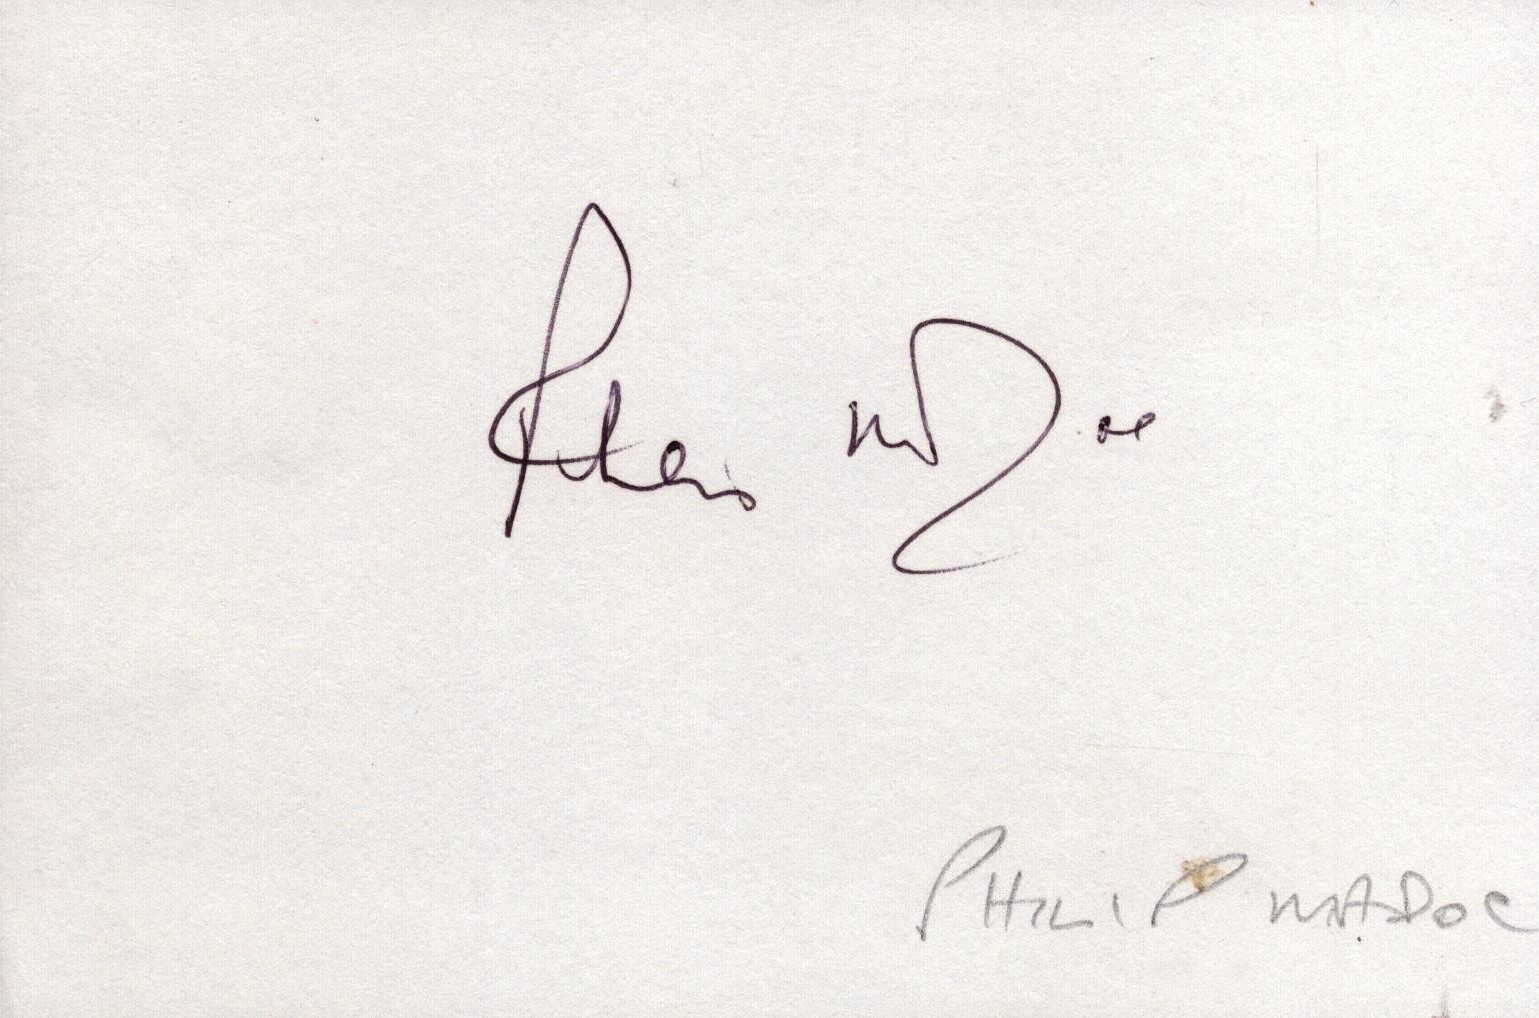 Philip Madoc
PHILIP MADOC